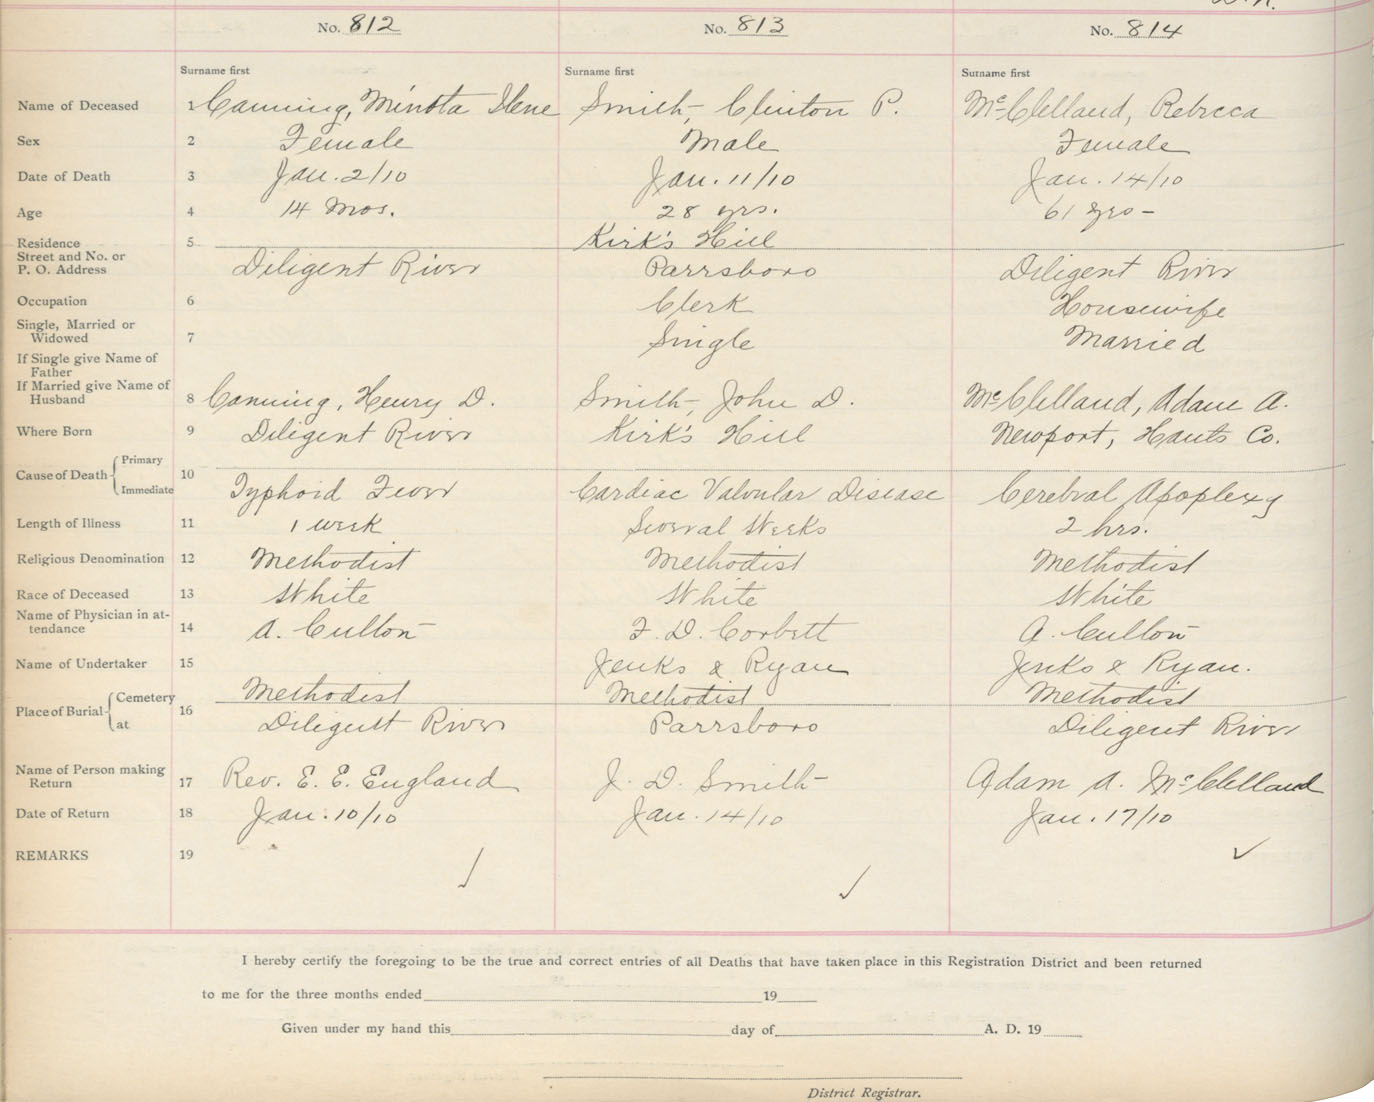 No. 812 No. 813 No. 814
Surname first Surname first Surname first
Name of Deceased 1 Canning, Minota Ilene Smith, Clinton P. McClelland, Rebecca
Sex 2 Female Male Female
Date of Death 3 Jan. 2/10 Jan. 11/10 Jan. 14/10
Age 4 14 Mos. 28 yrs. 61 yrs -
Residence 5 Kirk's Hill
Street and No. or
P. O. Address Diligent River Parrsboro Diligent River
Occupation 6 Clerk Housewife
Single, Married or
Widowed 7 Single Married
If Single give Name of
Father
If Married give Name of
Husband 8 Canning, Henry D. Smith, John D. McClelland, Adam A.
Where Born 9 Diligent River Kirk's Hill Newport, Hants Co.
Cause of Death { Primary
10
Immediate Typhoid Fever Cardiac Valvular Disease Cerebral Apoplexy
Length of Illness 11 1 week Several Weeks 2 hrs.
Religious Denomination 12 Methodist Methodist Methodist
Race of Deceased 13 White White White
Name of Physician in at-
tendance 14 A. Cullon F. D. Corbett A. Cullon
Name of Undertaker 15 Jenks & Ryan Jenks & Ryan.
Place of Burial { Cemetery 16 Methodist Methodist Methodist
at Diligent River Parrsboro Diligent River
Name of Person making
Return 17 Rev. E. E. England J. D. Smith Adam A. McClelland
Date of Return 18 Jan. 10/10 Jan. 14/10 Jan. 17/10
REMARKS 19
I hereby certify the foregoing to be the true and correct entries of all Deaths that have taken place in this Registration District and been returned
to me for the three months ended 19
Given under my hand this day of A. D. 19
District Registrar.